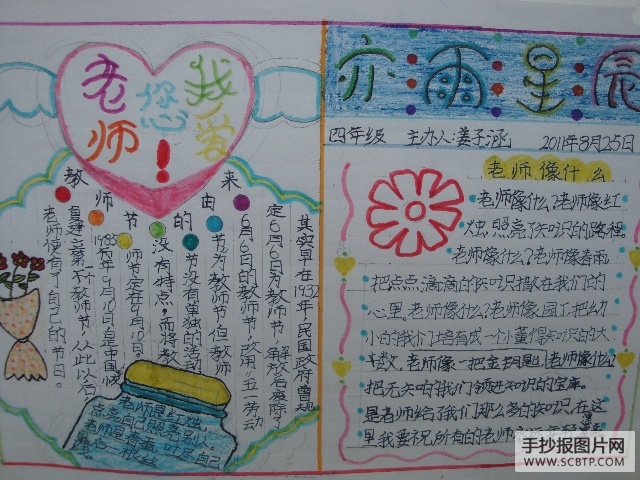 我爱
您
老师
！
教师节的由来
其实早在1932年民国政府曾规
定6月6日为教师节，解放后废除了
6月6日的教师节，改用“五一劳动
节”为教师节，但教师
节没有单独的活动
没有特点，而将教
师节定在9月10日
1985年9月10日，是中国恢
复建立第一个教师节，从此以后
老师便有了自己的节日。
老师是红烛，
照亮别人。
老师是春蚕，吐尽自己
亦雨星辰
四年级 主办人：姜子涵 2011年8月25日
老师像什么
老师像什么？老师像红
烛，照亮了知识的路程。
老师像什么？老师像春雨，
把点点滴滴的知识播在我们的
心里。老师像什么？老师像园丁，把幼
小的我们培育成一个个懂得知识的大
树。老师像一把金钥匙，老师像什么？
把无知的我们领进知识的宝库。
是老师给了我们那么多的知识，在这
里我要祝所有的老师
手抄报图片网
WWW.SCBTP.COM